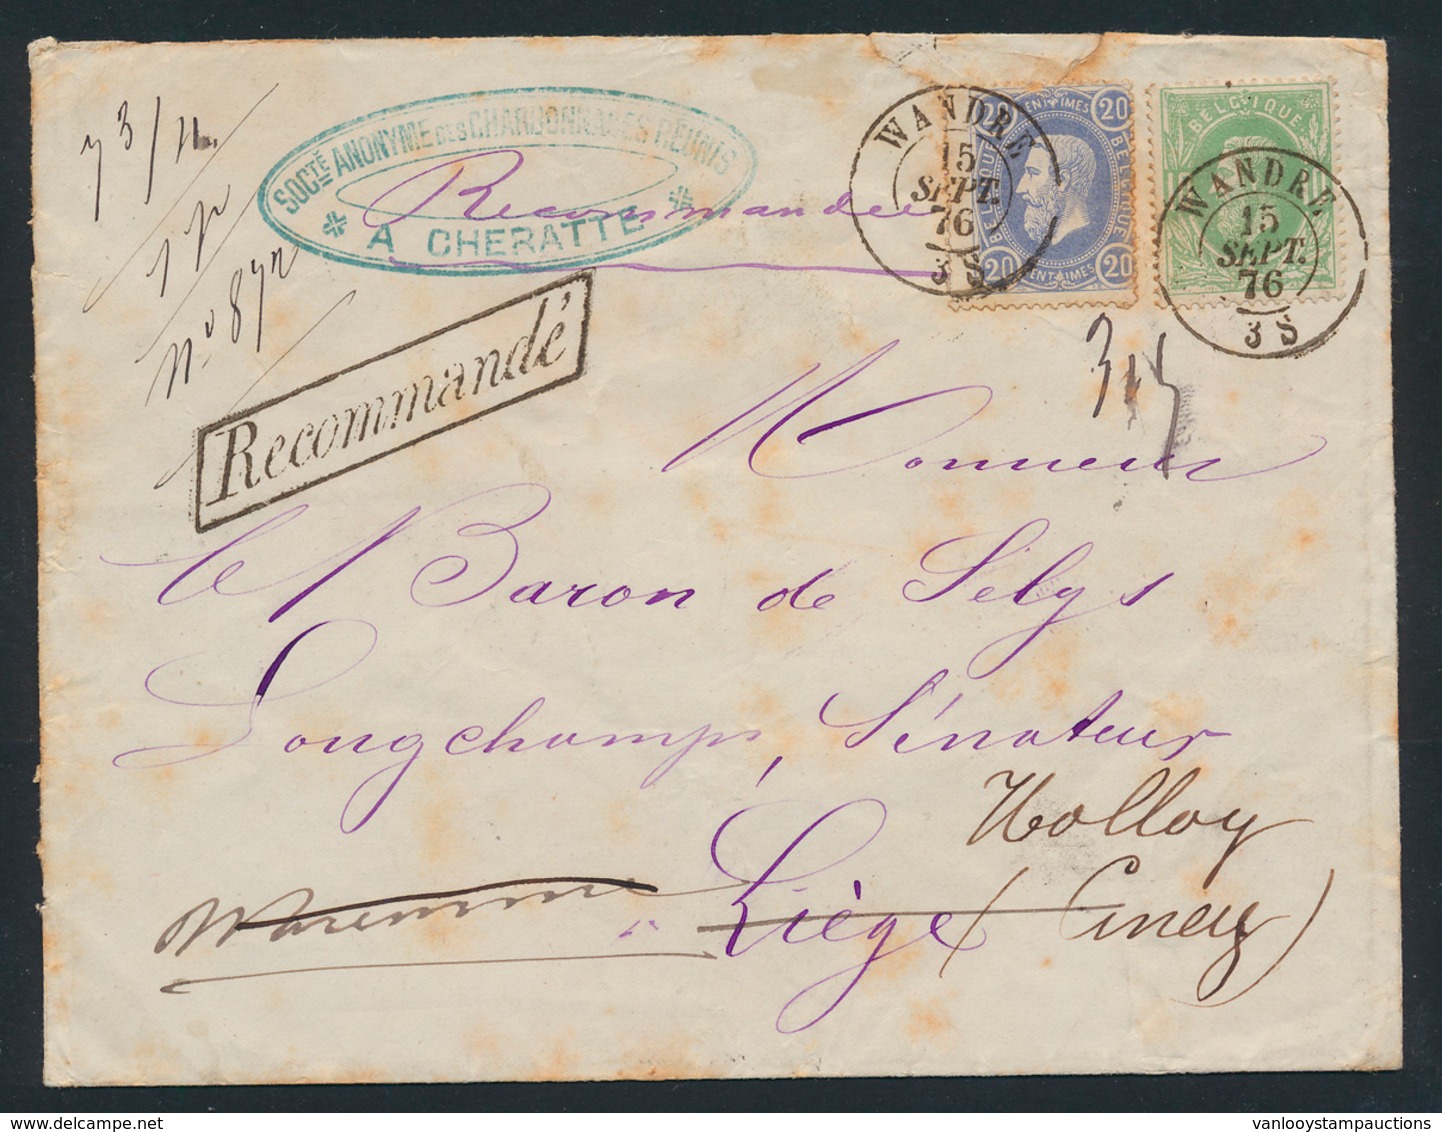 73/11.
1 p
n° 872
SOCTÉ ANONYME DES CHARBONNAGES RÉUNIS
A CHERATTE
Recommandée
Recommandé
WANDRE
15
SEPT.
76
3 S
CENTIMES
20 20
BELGIQUE BELGIQUE
20 CENTIMES 20
BELGIQUE
WANDRE
15
SEPT.
76
3 S
Monsieur
le Baron de Selys
Longchamps, Sénateur
Halloy
Waremme à Liège (Ciney)
vanlooystampauctions